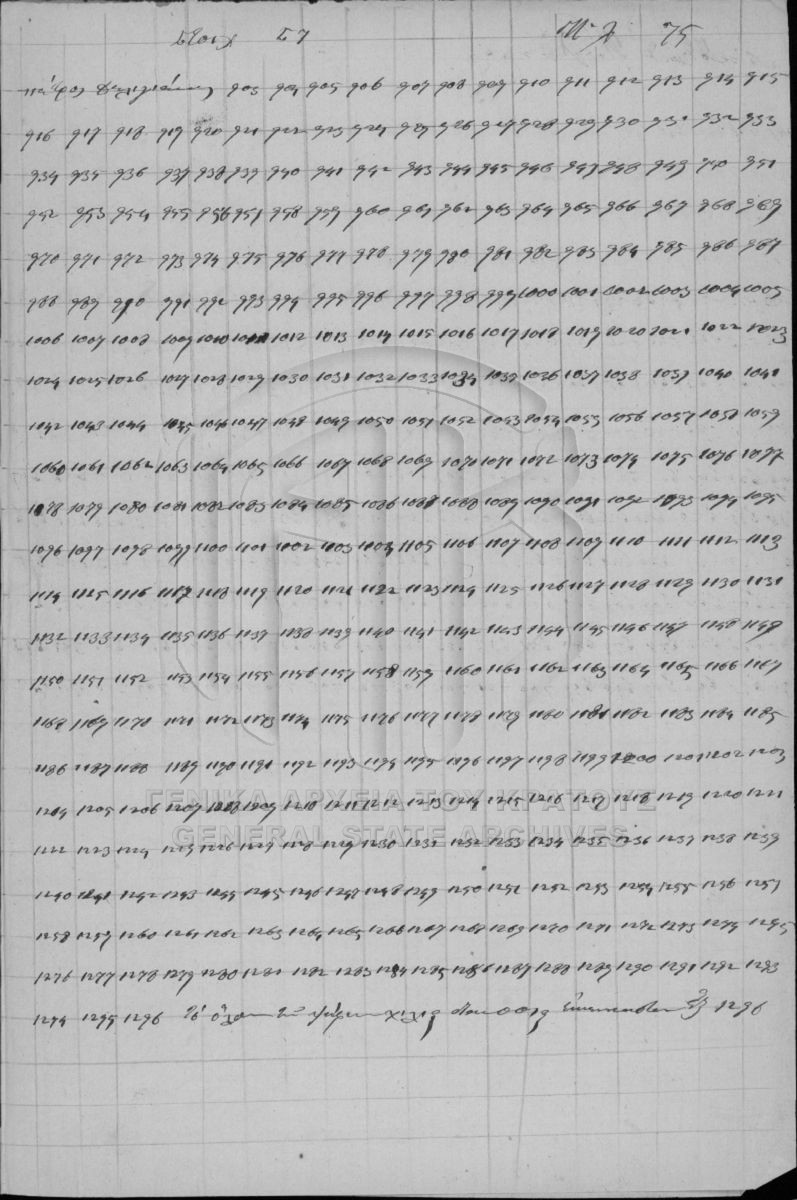 903 904 905 906 907 908 909 910 911 912 913 914 915
916 917 918 919 920 921 922 923 924 925 926 927 928 929 930 931 932 933
934 935 936 937 938 939 940 941 942 943 944 945 946 947 948 949 950 951
952 953 954 955 956 957 958 959 960 961 962 963 964 965 966 967 968 969
970 971 972 973 974 975 976 977 978 979 980 981 982 983 984 985 986 987
988 989 990 991 992 993 994 995 996 997 998 999 1000 1001 1002 1003 1004 1005
1006 1007 1008 1009 1010 1011 1012 1013 1014 1015 1016 1017 1018 1019 1020 1021 1022 1023
1024 1025 1026 1027 1028 1029 1030 1031 1032 1033 1034 1035 1036 1037 1038 1039 1040 1041
1042 1043 1044 1045 1046 1047 1048 1049 1050 1051 1052 1053 1054 1055 1056 1057 1058 1059
1060 1061 1062 1063 1064 1065 1066 1067 1068 1069 1070 1071 1072 1073 1074 1075 1076 1077
1078 1079 1080 1081 1082 1083 1084 1085 1086 1087 1088 1089 1090 1091 1092 1093 1094 1095
1096 1097 1098 1099 1100 1101 1002 1003 1004 1105 1106 1107 1108 1109 1110 1111 1112 1113
1114 1125 1116 1117 1118 1119 1120 1121 1122 1123 1124 1125 1126 1127 1128 1129 1130 1131
1132 1133 1134 1135 1136 1137 1138 1139 1140 1141 1142 1143 1144 1145 1146 1147 1148 1149
1150 1151 1152 1153 1154 1155 1156 1157 1158 1159 1160 1161 1162 1163 1164 1165 1166 1167
1168 1169 1170 1171 1172 1173 1174 1175 1176 1177 1178 1179 1180 1181 1182 1183 1184 1185
1186 1187 1188 1189 1190 1191 1192 1193 1194 1195 1196 1197 1198 1199 1200 1201 1202 1203
ΓΕΝΙΚΑ ΑΡΧΕΙΑ ΤΟΥ ΚΡΑΤΟΥΣ
1204 1205 1206 1207 1208 1209 1210 1211 1212 1213 1214 1215 1216 1217 1218 1219 1220 1221
GENERAL STATE ARCHIVES
1222 1223 1224 1225 1226 1227 1228 1229 1230 1231 1232 1233 1234 1235 1236 1237 1238 1239
1240 1241 1242 1243 1244 1245 1246 1247 1248 1249 1250 1251 1252 1253 1254 1255 1256 1257
1258 1259 1260 1261 1262 1263 1264 1265 1266 1267 1268 1269 1270 1271 1272 1273 1274 1275
1276 1277 1278 1279 1280 1281 1282 1283 1284 1285 1286 1287 1288 1289 1290 1291 1292 1293
1294 1295 1296 1296